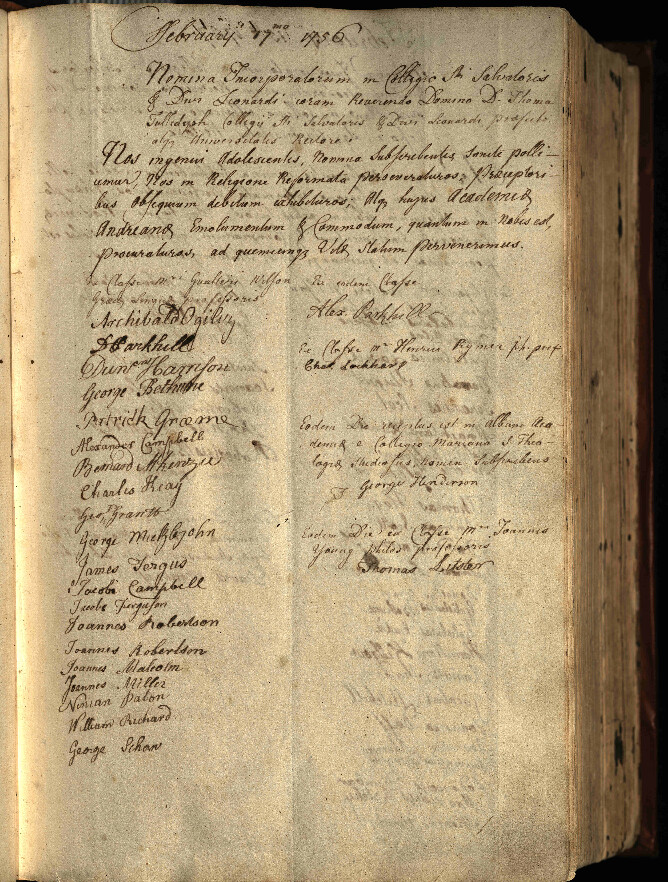 February 17mo 1756
Nomina Incorporatorum in Collegio Sti Salvatoris
& Divi Leonardi coram Reverendo Domino D. Thoma
Tullidelph Collegij Sti Salvatoris & Divi Leonardi præfecto
atqȝ Universitatis Rectore:
Nos ingenui Adolescentes, Nomina Subscribentes, Sancte polli-
cemur, Nos in Religione Reformata perseveraturos; Præceptori-
bus Obsequium debitum exhibituros; Atqȝ hujus Academiæ
Andreanæ Emolumentum & Commodum, quantum in Nobis est,
procuraturos, ad quemcunqȝ Vitæ Statum pervenerimus.
Ex Classe Mri Gualteri Wilson
Græc. Linguæ professoris
Archibald Ogilvy
Parkhill
Dun Harrison
George Bethune
Patrick Græme
Alexander Campbell
Bernard
Charles Keay
Geor: Grant
George
James Fergus
Jacobs Campbell
Jacobs Ferguson
Joannes Robertson
Joannes Robertson
Joannes Malcolm
Joannes Miller
Ninian Paton
William Richard
George Schaw
Ex eodem Classe
Alex. Parkhill
Ex Classe Mri Henrici Rymer ph. prof
Lockhart
Eodem Die receptus est in Album Aca-
demiæ e Collegio Mariano S. Theo-
logiæ Studiosus, Nomen Subscribens
George Henderson
Eodem Die ex Classe Mri Joannis
Young philos. professoris
Thomas Lister